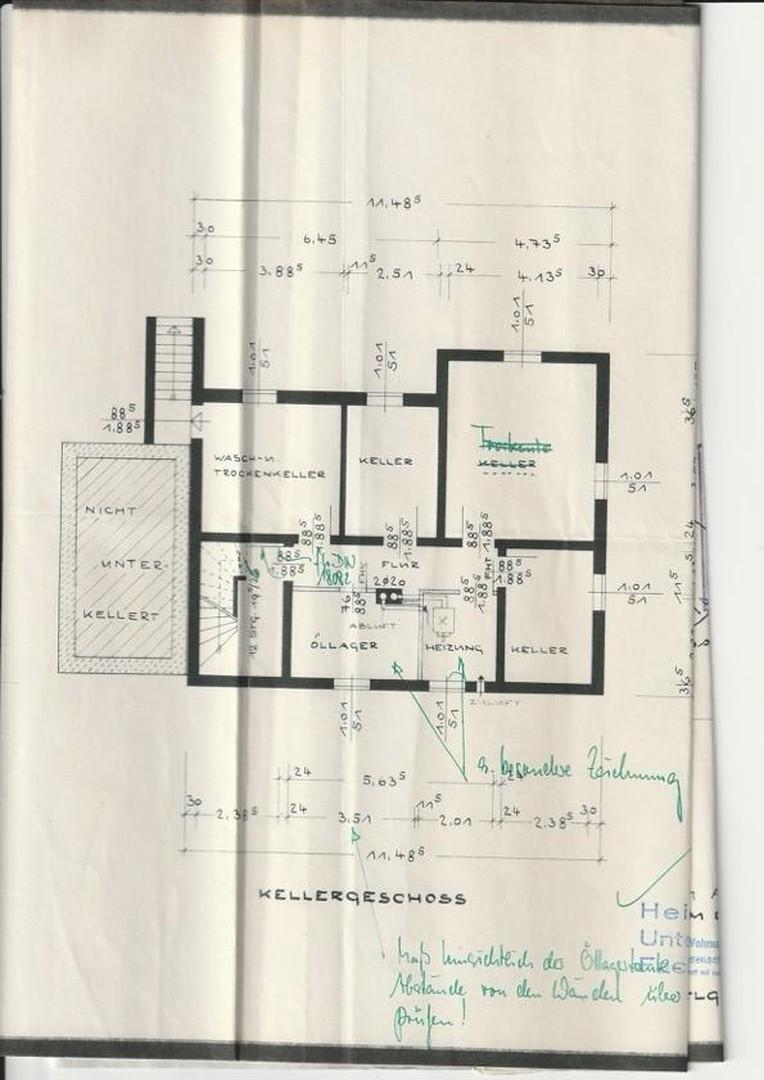 11.48⁵
30
6.45
4.73⁵
30
3.88⁵
11⁵
2.51
24
4.13⁵
30
1.01
51
1.01
51
1.01
51
88⁵
1.88⁵
36⁵
WASCH-U.
TROCKENKELLER
KELLER
Trockende
KELLER
1.01
51
NICHT
UNTER-
KELLERT
88⁵
1.88⁵
88⁵
1.88⁵
88⁵
1.88⁵
24
88⁵
1.88⁵
DIN
18082
FLUR
2Ø20
76
88⁵
88⁵
1.88⁵ FHT
88⁵
1.88⁵
1.01
51
11⁵
12 STG.
ABLUFT
ÖLLAGER
HEIZUNG
KELLER
36⁵
1.01
51
1.01
51
ZULUFT
s. besondere Zeichnung
24
5.63⁵
24
30
2.38⁵
24
3.51
11⁵
2.01
24
2.38⁵
30
11.48⁵
KELLERGESCHOSS
Heim
Unt
Maß hinsichtlich der Öllagertank
Abstände von den Wänden über
prüfen!